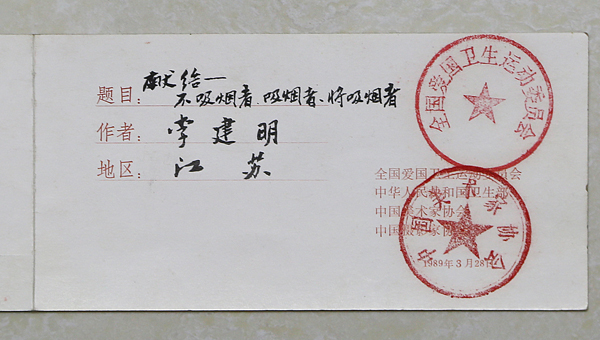 献给一
题目：不吸烟者、吸烟者、将吸烟者
作者：李建明
地区：江苏
全国爱国卫生运动委员会
全国爱国卫生运动委员会
中华人民共和国卫生部
中国美术家协会
中国摄影家协会
1989年3月28日
中国美术家协会